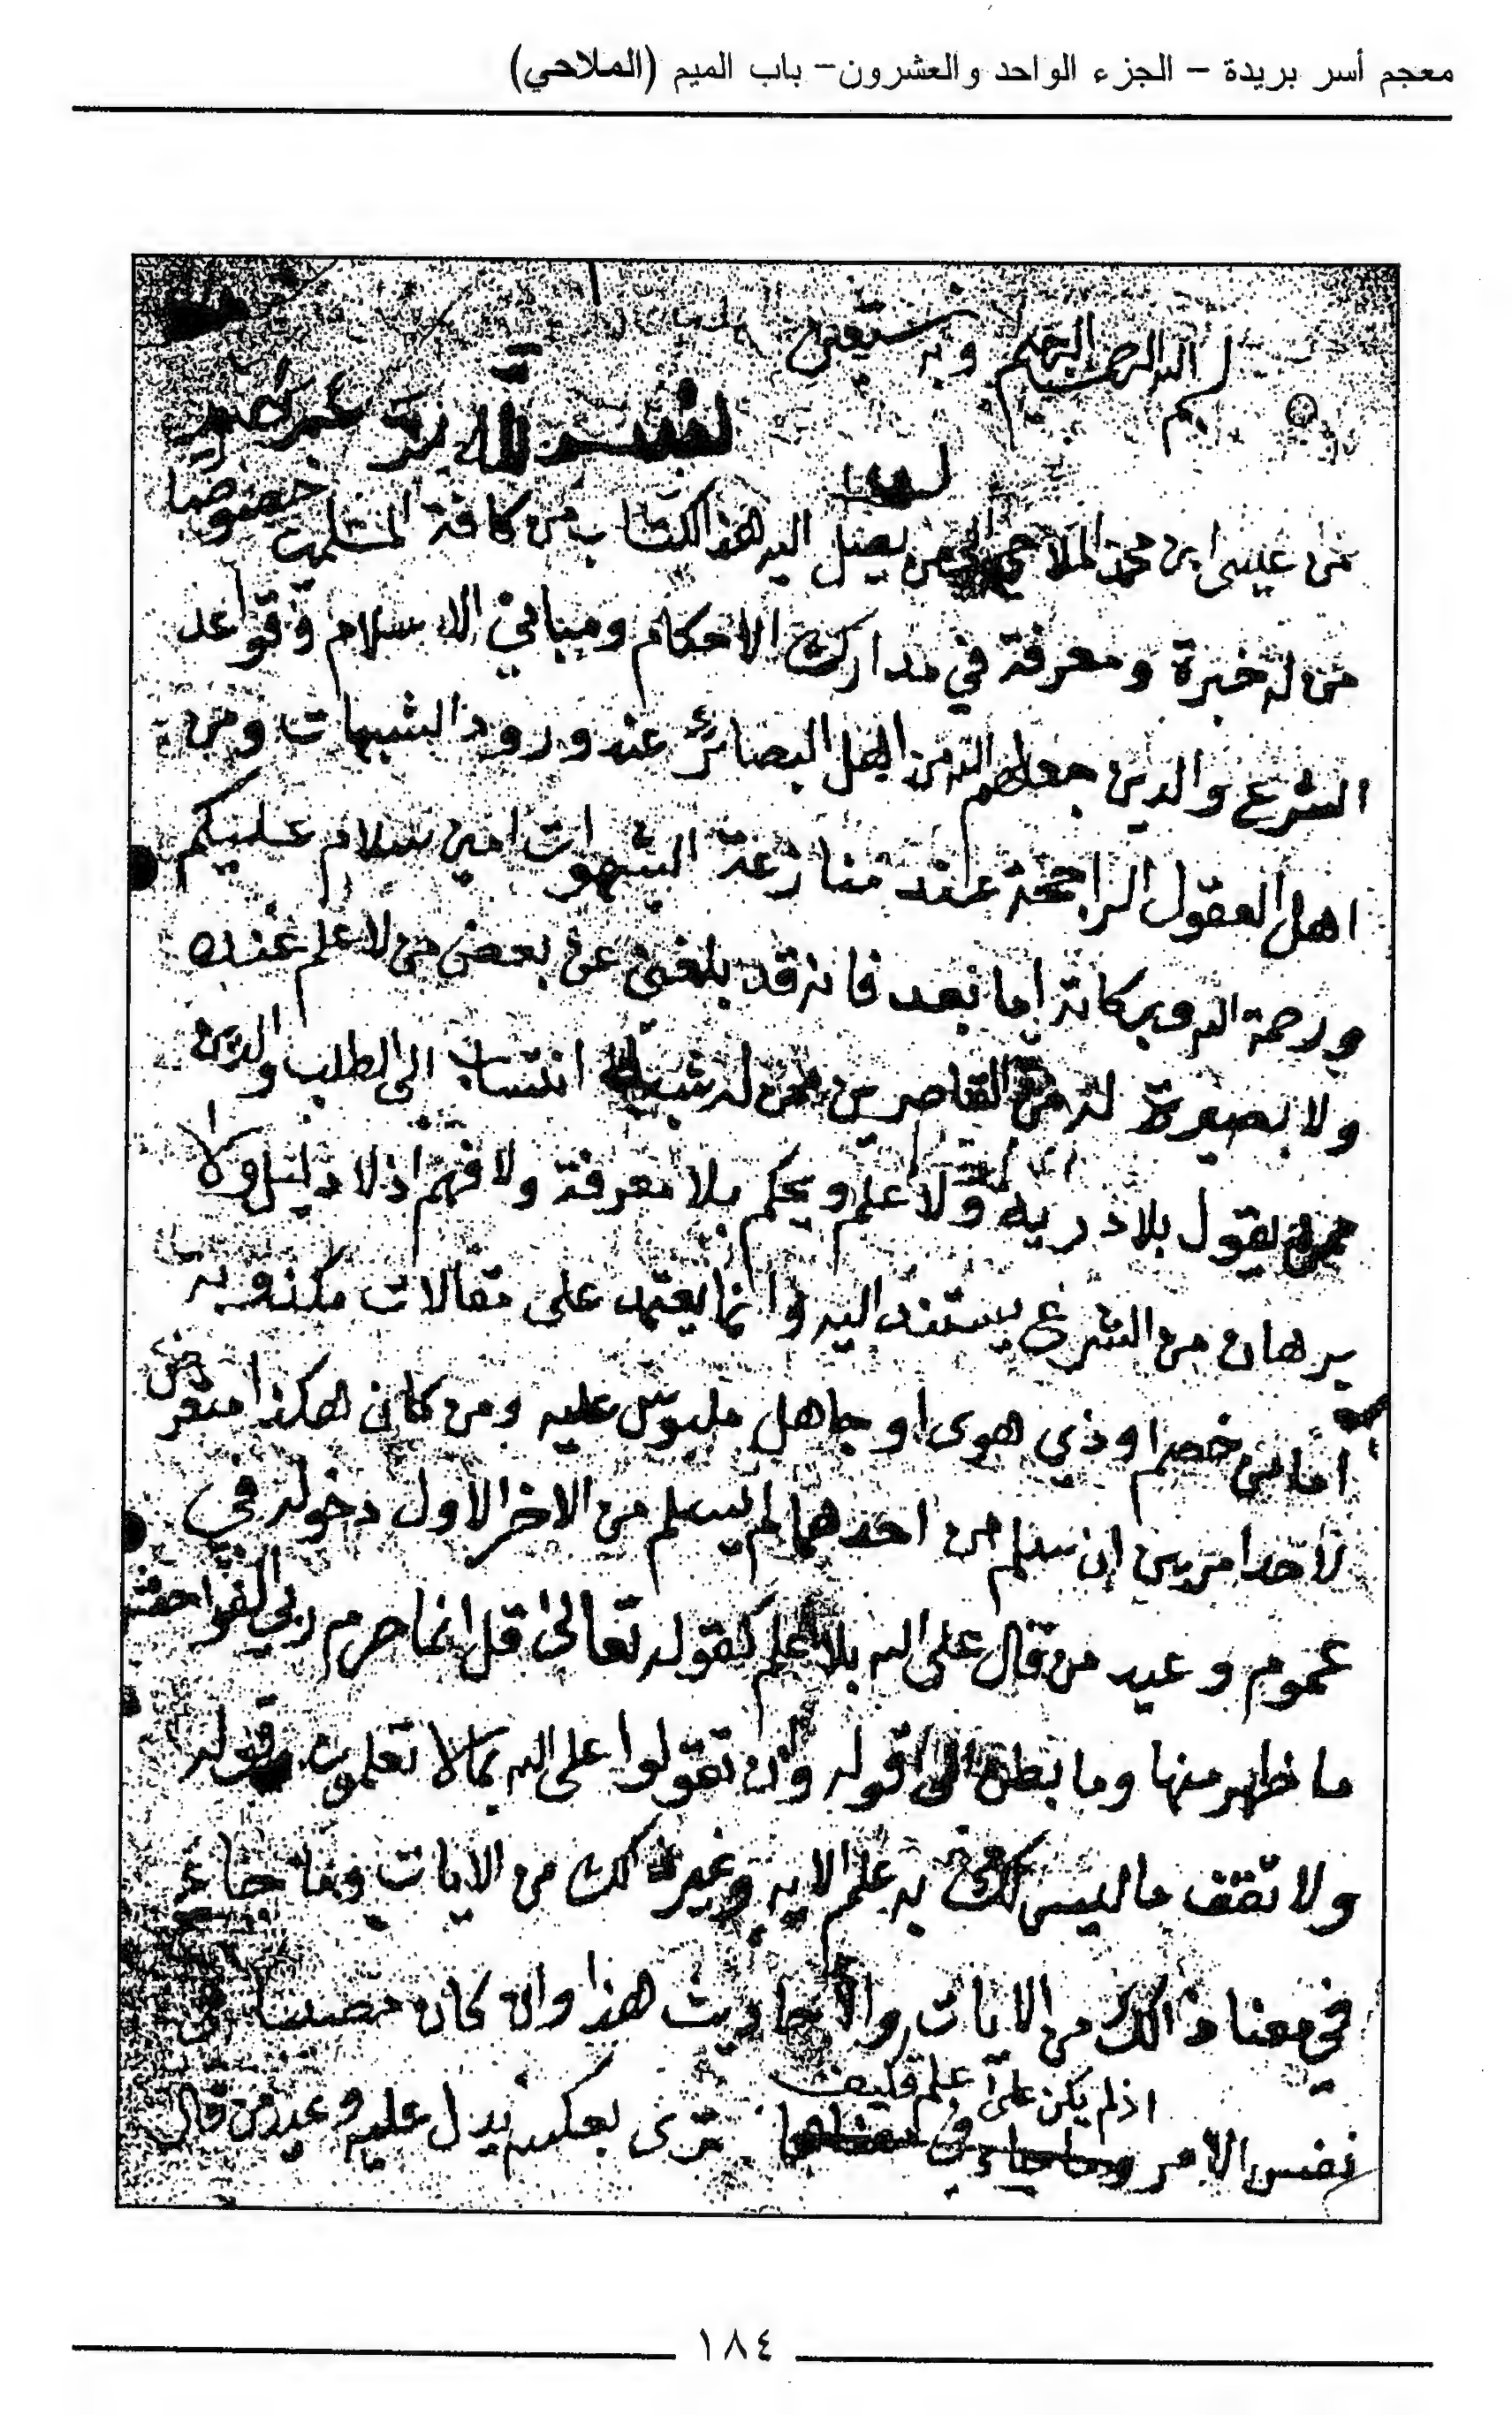 معجم أسر بريدة – الجزء الواحد والعشرون– باب الميم (الملاحي)
بسم الله الرحمن الرحيم وبه نستعين
من عيسى ابن محمد الملاحي الى من يصل اليه هذا الكتاب من كافة المسلمين خصوصا
من له خبرة ومعرفة في مدارك الاحكام ومباني الاسلام وقواعد
الشرع والدين جعلهم الله من اهل البصائر عند ورود الشبهات ومن
اهل العقول الراجحة عند منازعة الشهوات امين سلام عليكم
ورحمة الله وبركاته اما بعد فانه قد بلغني عن بعض من لا علم عنده
ولا بصيرة لديه من القاصرين ممن له انتساب الى الطلب والدين
ممن يقول بلا دريه ولا علم ويحكم بلا معرفة ولا فهم اذ لا دليل ولا
برهان من الشرع يستند اليه وانما يعتمد على مقالات مكذوبه
اما من خصم او ذي هوى او جاهل ملبوس عليه ومن كان هكذا متعرض
لاحد امرين إن سلم من احدهما لم يسلم من الاخر الاول دخوله في
عموم وعيد من قال على الله بلا علم كقوله تعالى قل انما حرم ربي الفواحش
ما ظهر منها وما بطن الى قوله وان تقولوا على الله مالا تعلمون وقوله
ولا تقف ما ليس لك به علم الايه وغير ذالك من الايات وما جاء
في معنا ذالك من الايات والاحاديث هذا وان كان مصيبا في
اذ لم يكن على علم فكيف
نفس الامر ترى بعكسه يدل عليه وعيد من قال
١٨٤